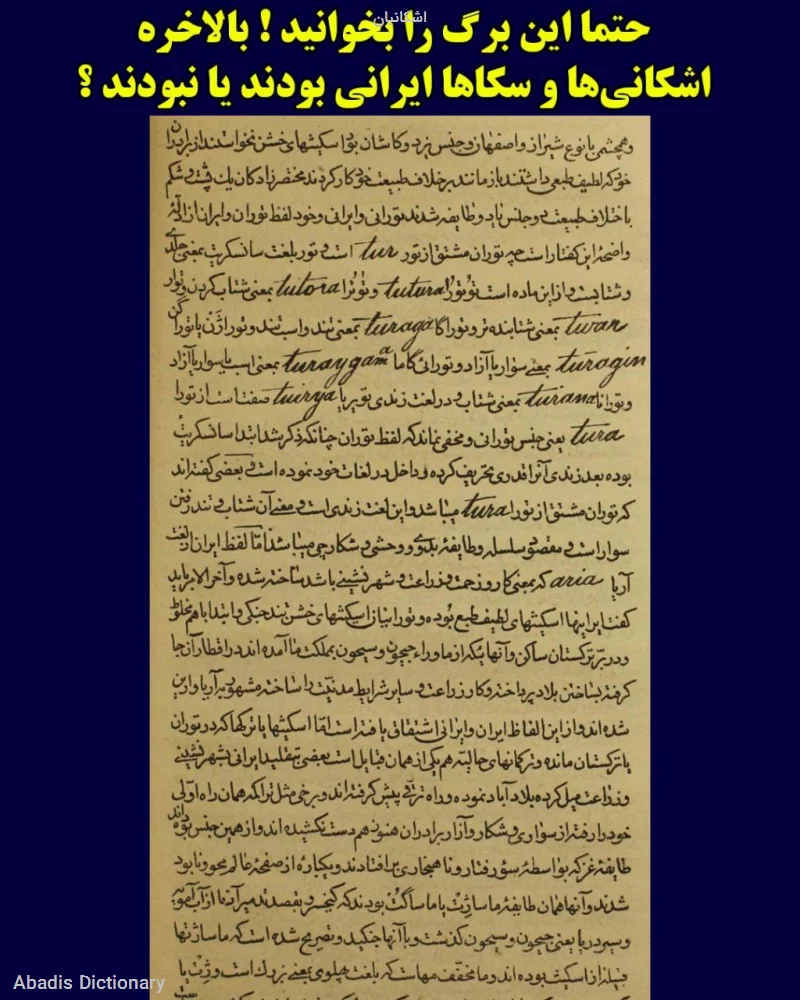 اشکانیان
حتما این برگ را بخوانید ! بالاخره
اشکانی‌ها و سکاها ایرانی بودند یا نبودند ؟
و همچشمی با نوع شیراز و اصفهان و جنس یزد و کاشان بود اسکیتهای خشن نخواستند از برادران
خود که لطیف طبعی داشتند باز مانند بر خلاف طبیعت خود کار کردند مختصر زادگان یک پشت و شکم
باختلاف طبیعت و جنس نژاد و طایفه شدند تورانی و ایرانی و خود لفظ توران و ایران از ادلهٔ
واضحهٔ این گفتار است چه توران مشتق از تور tur است و تور بلغت سانسکریت بمعنی جلدی
و شتابست و از این ماده است توتورا tutura و توتُرا tutora بمعنی شتاب کردن و توار
twan بمعنی شتابنده تر و توراگا turaga بمعنی تند و اسب تند و توراژن یا توراگن
turagin بمعنی سوار یا آزاد و تورانی گاما turaygama بمعنی اسب یا سوار یا آزاد
و تورانا turana بمعنی شتاب و در لغت زندی تویریا tuirya صفتاست از تورا
tura یعنی جنس تورانی و مخفی نماند که لفظ توران چنانکه ذکر شد ابتدا سانسکریت
بوده بعد زندی آنرا قدری تحریف کرده و داخل در لغات خود نموده است و بعضی گفته اند
که توران مشتق از تورا tura میباشد و این لغت زندی است و معنی آن شتاب و تند رفتن
سوار است و مقصود سلسله و طایفهٔ بدوی و وحشی و شکارچی میباشد امّا لفظ ایران از لغت
آریا aria که بمعنی کار و زحمت و زراعت و شهر نشینی باشد ساخته شده و آخر الامر باید
گفت ایرانیها اسکیتهای لطیف طبع بوده و تورانیان اسکیتهای خشن تند جنگی و ابتدا باهم مخلوط
و در برّ ترکستان ساکن و آنها نیکه از ماوراء جیحون و سیحون بمملکت ما آمده اند در اقطار آن جا
گرفته بساختن بلاد پرداخته و کار زراعت و سایر شرایط مدنیّت را ساخته مشهور به آریا و ارین
شده اند و از این الفاظ ایران و ایرانی اشتقاق یافته است امّا اسکیتها یا ترکها که در توران
یا ترکستان مانده و ترکمانهای حالیّه هم یکی از همان قبایل است بعضی بتقلید ایرانی بشهر نشینی
و زراعت میل کرده بلاد آباد نموده و راه ترقی پیش گرفته اند و برخی مثل تراکمه همان راه اوّلی
خود را رفته از سواری و شکار و آزار برادران هنوز هم دست نکشیده اند و از همین جنس بوده اند
طایفهٔ غز که بواسطهٔ سوء رفتار و ناهنجاری بر افتادند و یکباره از صفحهٔ عالم محو و نابود
شدند و آنها همان طایفهٔ ماساژت یا ماساگت بودند که کیخسرو بقصد تدمیر آنها از آب آمویه
و سیر دریا یعنی جیحون و سیحون گذشت و با آنها جنگید و تصریح شده است که ماساژتها
قبیله از اسکیت بوده اند و ما مخفّف مهاست که بلغت پهلوی بمعنی بزرک است و ژت یا
Abadis Dictionary